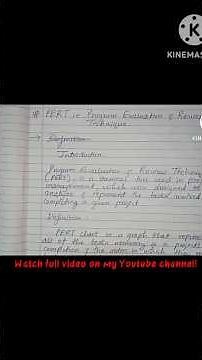 KINEMAS
PERT i.e Program Evaluation & Review
Technique
→ Definition
Introduction
Program Evaluation & Review Technique
(PERT) is a used in
management, which was designed to
analyze & represent the tasks involved
completing a given project
Definition
PERT chart is a graph that represe
all of the tasks necessary to a project's
completion & the order in which they
Watch full video on my Youtube channel!